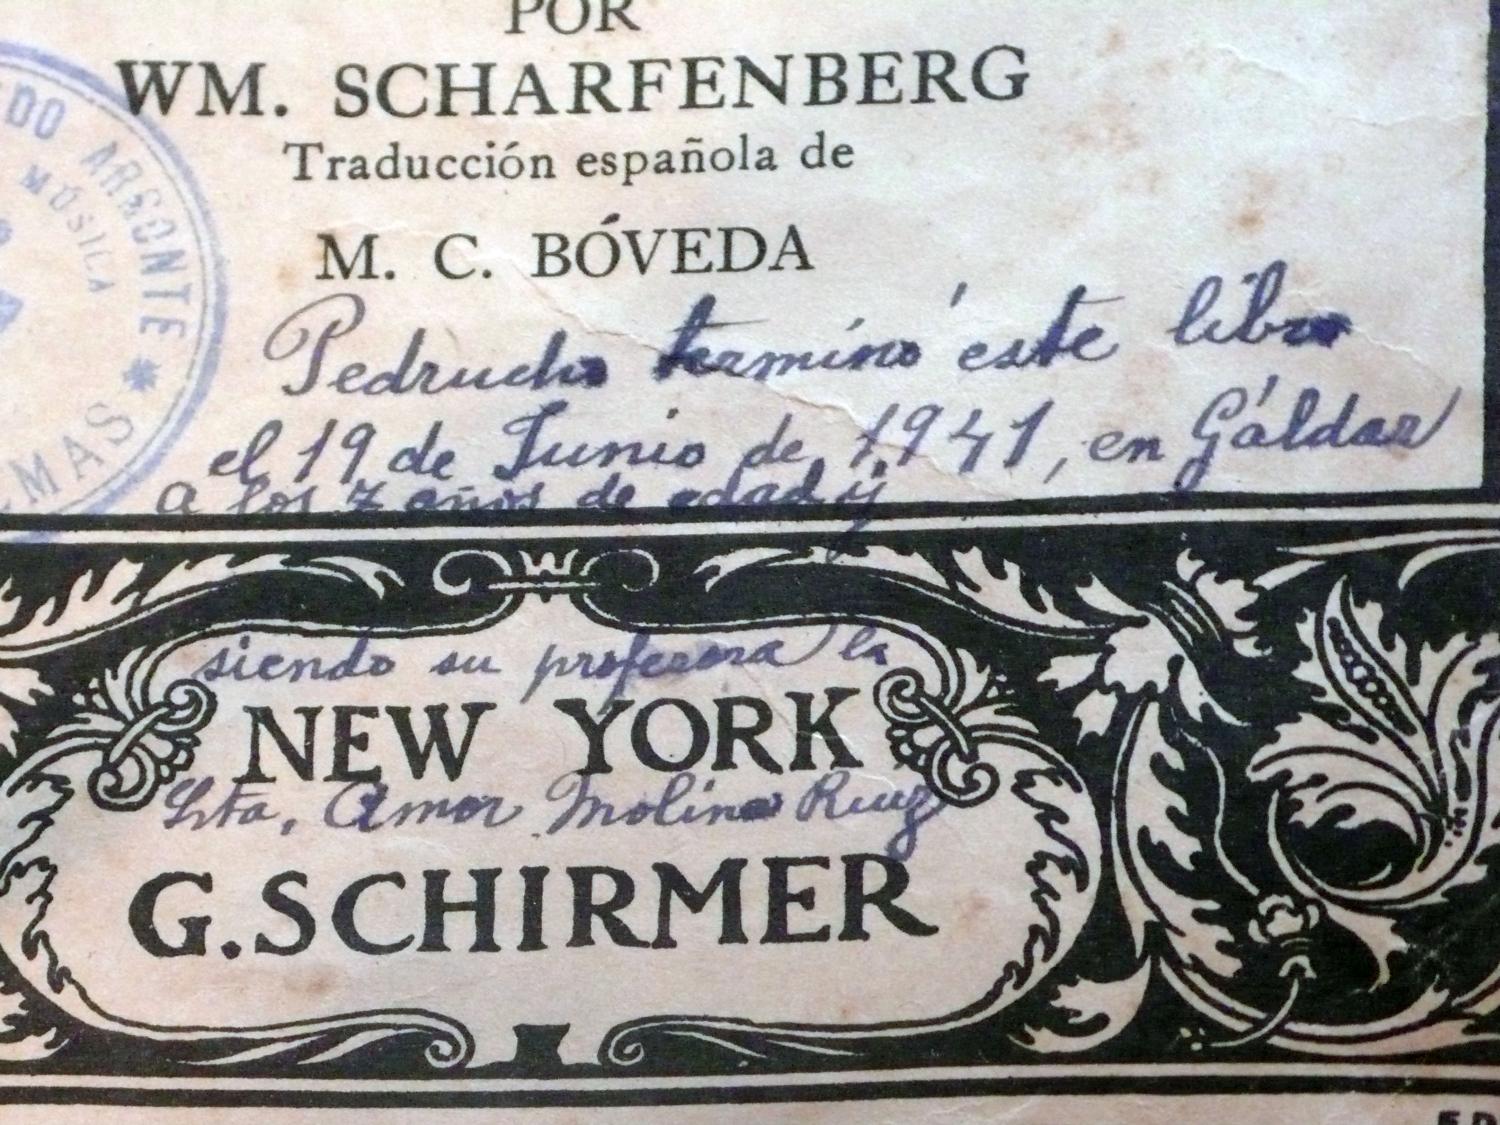 POR
WM. SCHARFENBERG
Traducción española de
M. C. BÓVEDA
Pedrucho terminó este libro
el 19 de Junio de 1941, en Gáldar
a los 7 años de edad y
siendo su profesora la
NEW YORK
Srta, Amor Molina Ruiz
G. SCHIRMER
DO ARGONTE *
MÚSICA
MAS